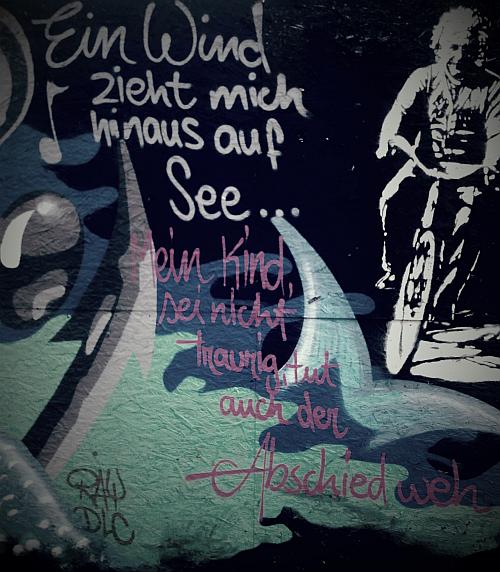 Ein Wind
zieht mich
hinaus auf
See...
Mein Kind,
sei nicht
traurig, tut
auch der
Abschied weh
RAW
DLC